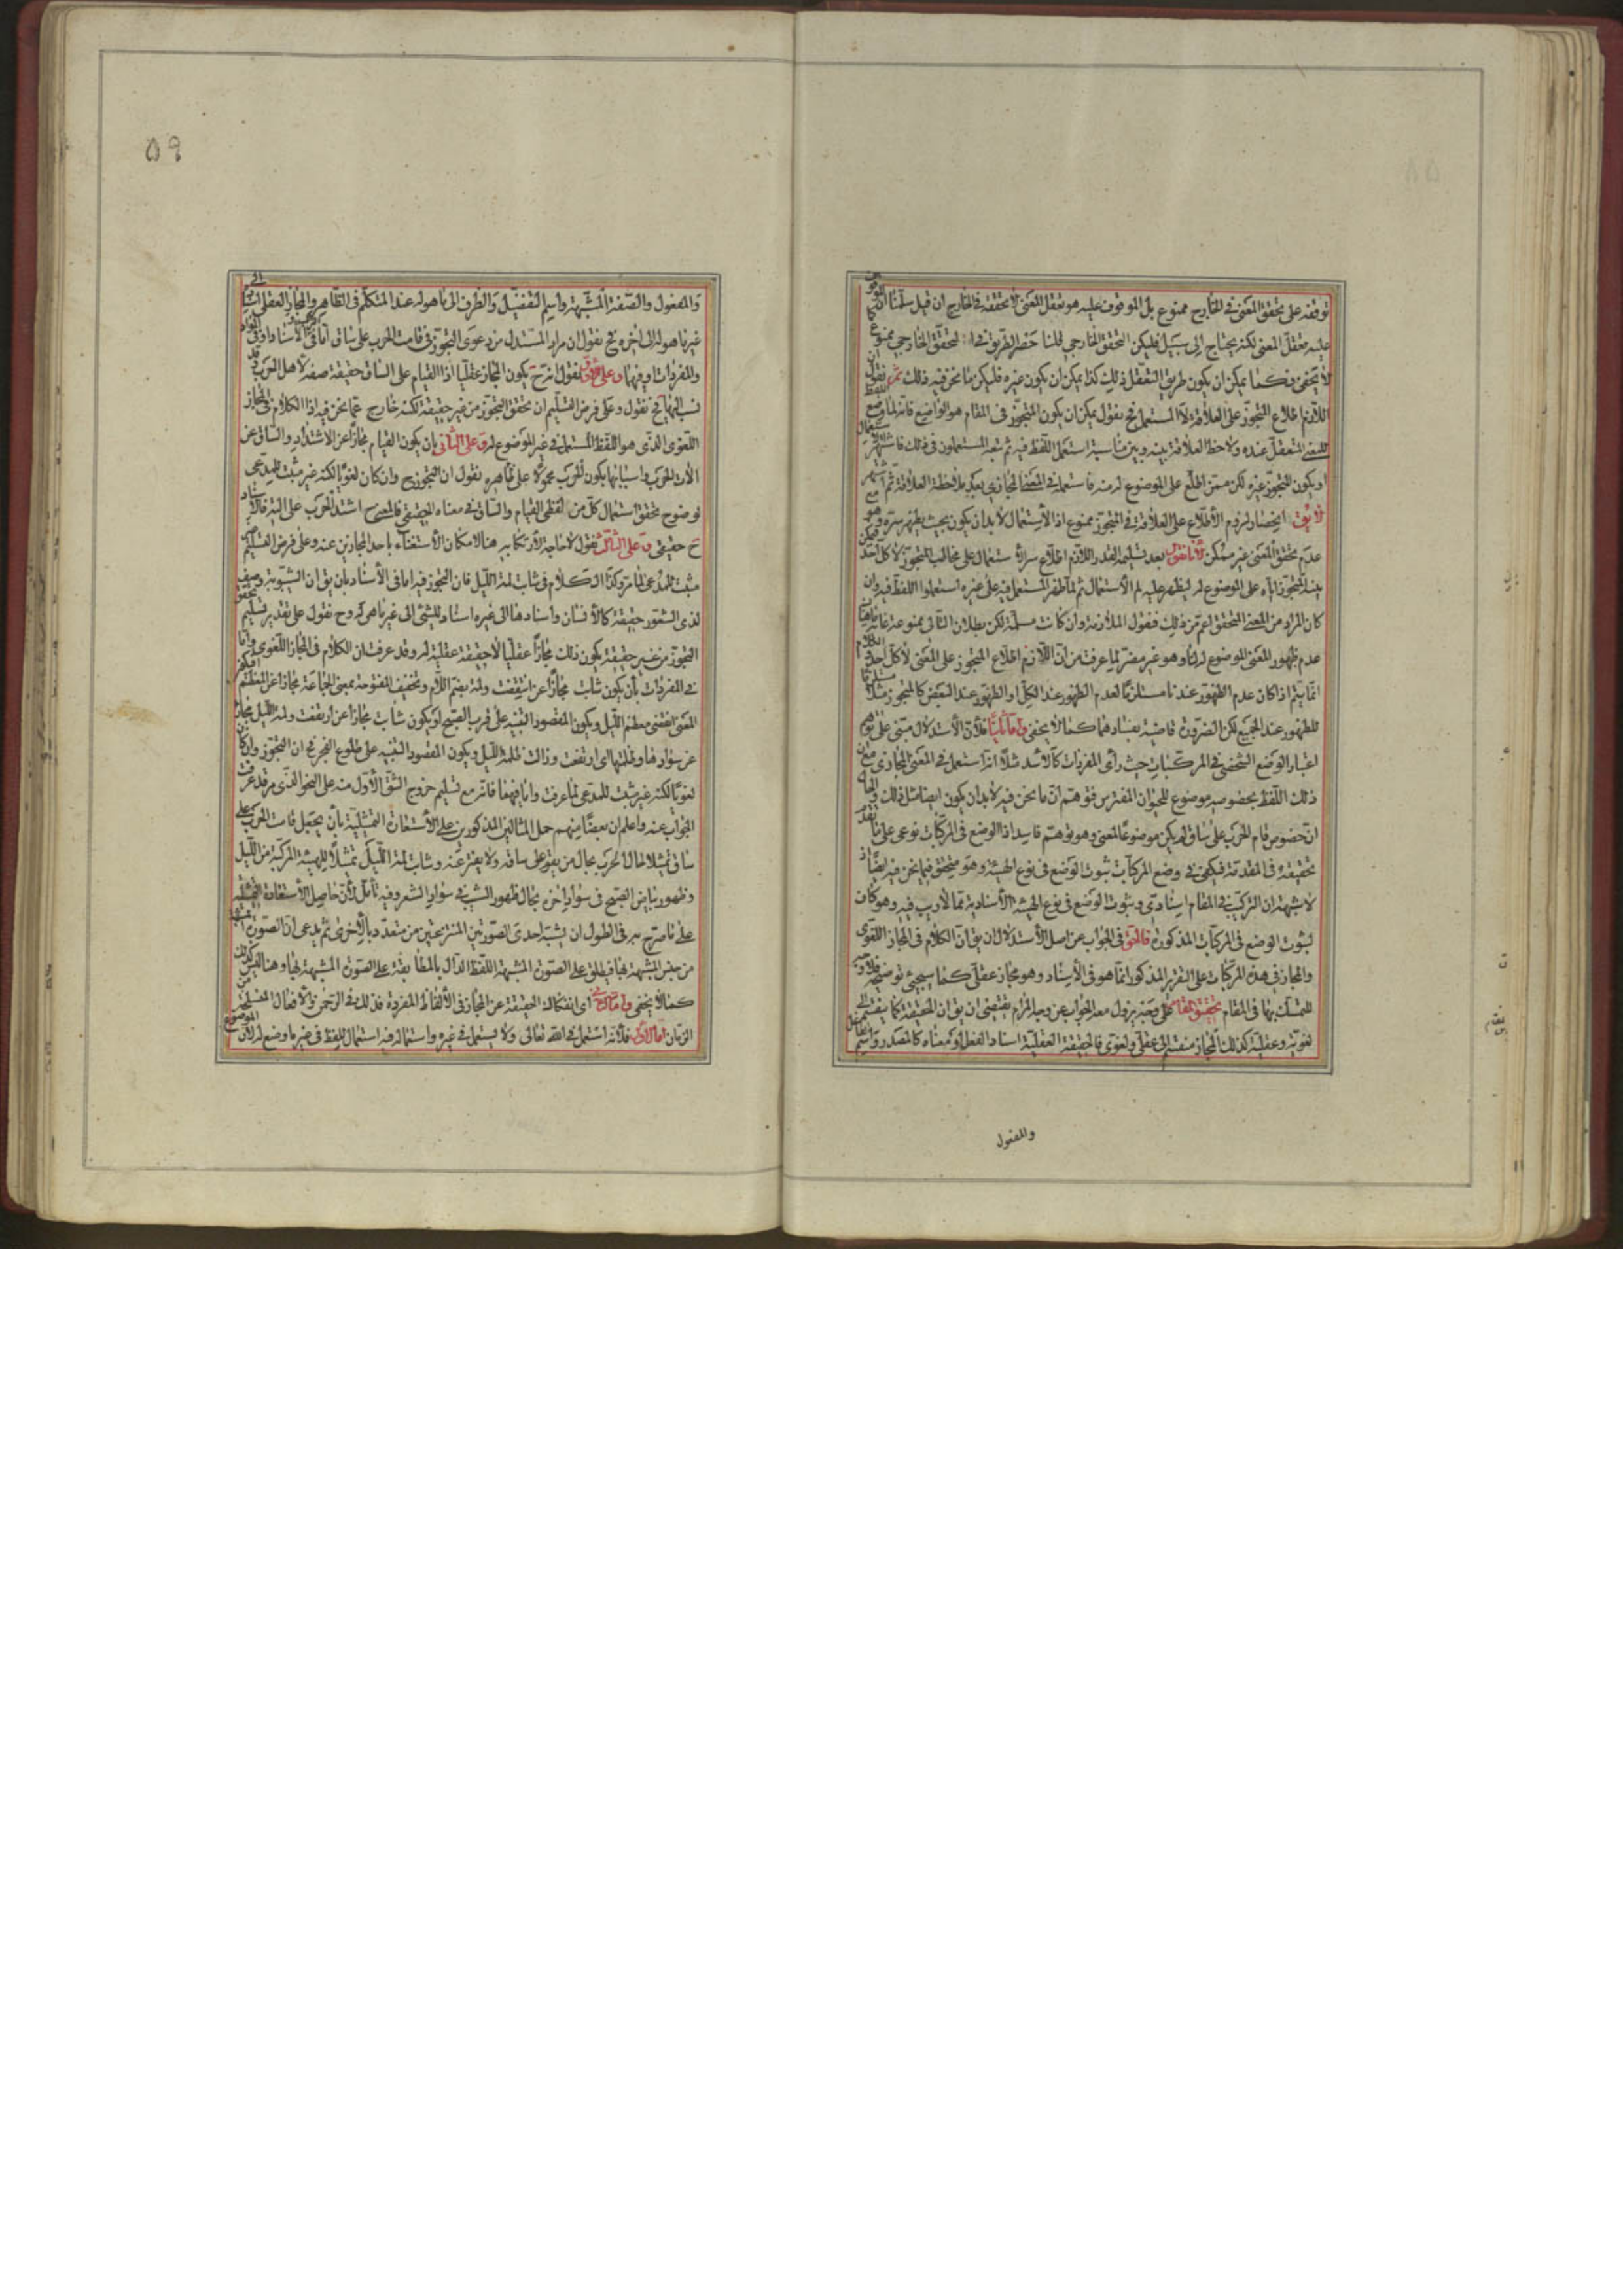 توقفه على تحقق المعنى في الخارج ممنوع بل الموقوف عليه هو تعقل المعنى لا تحققه في الخارج ان قيل سلمنا ان الموقوف
عليه تعقل المعنى لكنه يحتاج الى سبيل فليكن التحقق الخارجي قلنا حصر الطريق في التحقق الخارجي ممنوع كما
لا يخفى فكما يمكن ان يكون طريق التعقل ذلك كذا يمكن ان يكون غيره فليكن ما نحن فيه ذلك ثم نقول ان
اللازم اطلاع المتجوز على العلاقة لا المستعمل فح نقول يمكن ان يكون المتجوز في المقام هو الواضع فانه لما وضع اللفظ
للمعنى المتعقل عنده ولاحظ العلاقة بينه وبين مناسبة استعمل اللفظ فيه ثم تبعه المستعملون في ذلك فاشتهر الاستعمال
او يكون المتجوز غيره لكن ممن اطلع على الموضوع له منه فاستعمله في المعنى المجازي بعد ملاحظة العلاقة ثم اشتهر
لا يق انحصار لزوم الاطلاع على العلاقة في المتجوز ممنوع اذ الاستعمال لا بد ان يكون بحيث يظهر سره وهو مع
عدم تحقق المعنى غير ممكن لانا نقول بعد تسليمه القدر اللازم اطلاع سر الاستعمال على مخاطب المتجوز لا كل احد فيمكن
بينه المتجوز اياه على الموضوع له ليظهر عليه سر الاستعمال ثم لما ظهر المستعمل فيه على غيره استعملوا اللفظ فيه وان
كان المراد من المعنى المتحقق اعم من ذلك فنقول الملازمة وان كانت مسلمة لكن بطلان التالي ممنوعة غاية ما هنا
عدم ظهور المعنى الموضوع له لنا وهو غير مضر لما عرفت من ان اللازم اطلاع المتجوز على المعنى لا كل احد
انما يتم اذا كان عدم الظهور عندنا مستلزما لعدم الظهور عند الكل او الظهور عند البعض كالمتجوز مثلا مستلزما
للظهور عند الجميع لكن الضرورة قاضية بفسادهما كما لا يخفى واما ثانيا فلان الاستدلال مبنى على توهم
اعتبار الوضع الشخصي في المركبات حيث رأى المفردات كالاسد مثلا انه استعمل في المعنى المجازي مع ان
ذلك اللفظ بخصوصه موضوع للحيوان المفترس فتوهم ان ما نحن فيه لا بد ان يكون ايضا مثل ذلك والحال
ان خصوص قام الحرب على ساق لم يكن موضوعا لمعنى وهو توهم فاسد اذ الوضع في المركبات نوعي على ما تقدم
تحقيقه في المقدمة فيكفى في وضع المركبات ثبوت الوضع في نوع الهيئة وهو متحقق فيما نحن فيه ايضا اذ
لا شبهة ان التركيب في المقام اسنادي وثبوت الوضع في نوع الهيئة الاسنادية مما لا ريب فيه وهو كاف
لثبوت الوضع في المركبات المذكورة فالحق في الجواب عن اصل الاستدلال ان يق ان الكلام في المجاز اللغوي
والمجاز في هذه المركبات على التقرير المذكور انما هو في الاسناد وهو مجاز عقلي كما سيجيء توضيحه فلا وجه
للتمسك بها في المقام تحقيق المقام على وجه يزول معه الحجاب عن وجه المرام يقتضي ان يق ان الحقيقة كما ينقسم الى
لغوية وعقلية كذلك المجاز منقسم الى عقلي ولغوي فالحقيقة العقلية اسناد الفعل او معناه كالمصدر واسم الفاعل
والمفعول
٥٩
والمفعول والصفة المشبهة واسم التفضيل والظرف الى ما هو له عند المتكلم في الظاهر والمجاز العقلي اسناده الى
غير ما هو له الى آخره فح نقول ان مراد المستدل من دعوى التجوز في قامت الحرب على ساق اما في الاسناد او في
والمفردات او فيهما وعلى الاول نقول انه ح يكون المجاز عقليا اذ القيام على الساق حقيقة صفة لاهل الحرب وقد
نسب اليها فح نقول وعلى فرض التسليم ان تحقق التجوز من غير حقيقة لكنه خارج عما نحن فيه اذ الكلام في المجاز
اللغوي الذي هو اللفظ المستعمل في غير الموضوع له وعلى الثاني بان يكون القيام مجازا عن الاشتداد والساق عن
الآلات الحرب واسبابها يكون الحرب محمولا على ظاهره نقول ان التجوز ح وان كان لغويا لكنه غير مثبت للمدعى
لوضوح تحقق استعمال كل من لفظي القيام والساق في معناه الحقيقي فالمعنى ح اشتد الحرب على آلية فالاسناد
ح حقيقي وعلى الثالث نقول لا حاجة لارتكابه هنا لامكان الاستغناء باحد المجازين عنه وعلى فرض التسليم غير
مثبت للمدعى لما مر وكذا الكلام في شابت لمة الليل فان التجوز فيه اما في الاسناد بان يق ان الشيبوبة وصف
لذى الشعور حقيقة كالانسان واسنادها الى غيره اسناد للشيء الى غير ما هو له وح نقول على تقدير تسليم تحقق
التجوز من غير حقيقة يكون ذلك مجازا عقليا لا حقيقة عقلية له وقد عرفت ان الكلام في المجاز اللغوي واما
في المفردات بان يكون شابت مجازا عن انقضت ولمة بضم اللام وتخفيف المفتوحة بمعنى الجماعة مجازا عن المعظم
المعنى انقضى معظم الليل ويكون المقصود التنبيه على قرب الصبح او يكون شابت مجازا عن ارتفعت ولمة الليل مجازا
عن سوادها وظلمتها اى ارتفعت وزالت ظلمة الليل ويكون المقصود التنبيه على طلوع الفجر فح ان التجوز وان كان
لغويا لكنه غير مثبت للمدعى لما عرفت واما فيهما فانه مع تسليم خروج الشق الاول منه على النحو الذي مر قد عرفت
الجواب عنه واعلم ان بعضا منهم حمل المثالين المذكورين على الاستعارة التمثيلية بان يجعل قامت الحرب على
ساق تمثيلا لحال الحرب بحال من يقوم على ساقه ولا يفتر عنه وشابت لمة الليل تمثيلا للهيئة المركبة من الليل
وظهور بياض الصبح في سواد آخره بحال ظهور الشيب في سواد الشعر وفيه تأمل لان حاصل الاستعارة التمثيلية
على ما صرح به في المطول ان يشبه احدى الصورتين المنتزعتين من متعدد بالاخرى ثم يدعى ان الصورة المشبهة
من جنس المشبهة بها فيطلق على الصورة المشبهة اللفظ الدال بالمطابقة على الصورة المشبهة بها وهنا ليس كذلك
كما لا يخفى واما الثاني اى انفكاك الحقيقة عن المجاز في الالفاظ المفردة فذلك في الرحمن والافعال المنسلخة عن
الزمان اما الاول فلانه استعمل في الله تعالى ولا يستعمل في غيره واستعماله فيه استعمال للفظ في غير ما وضع له لان الموضوع